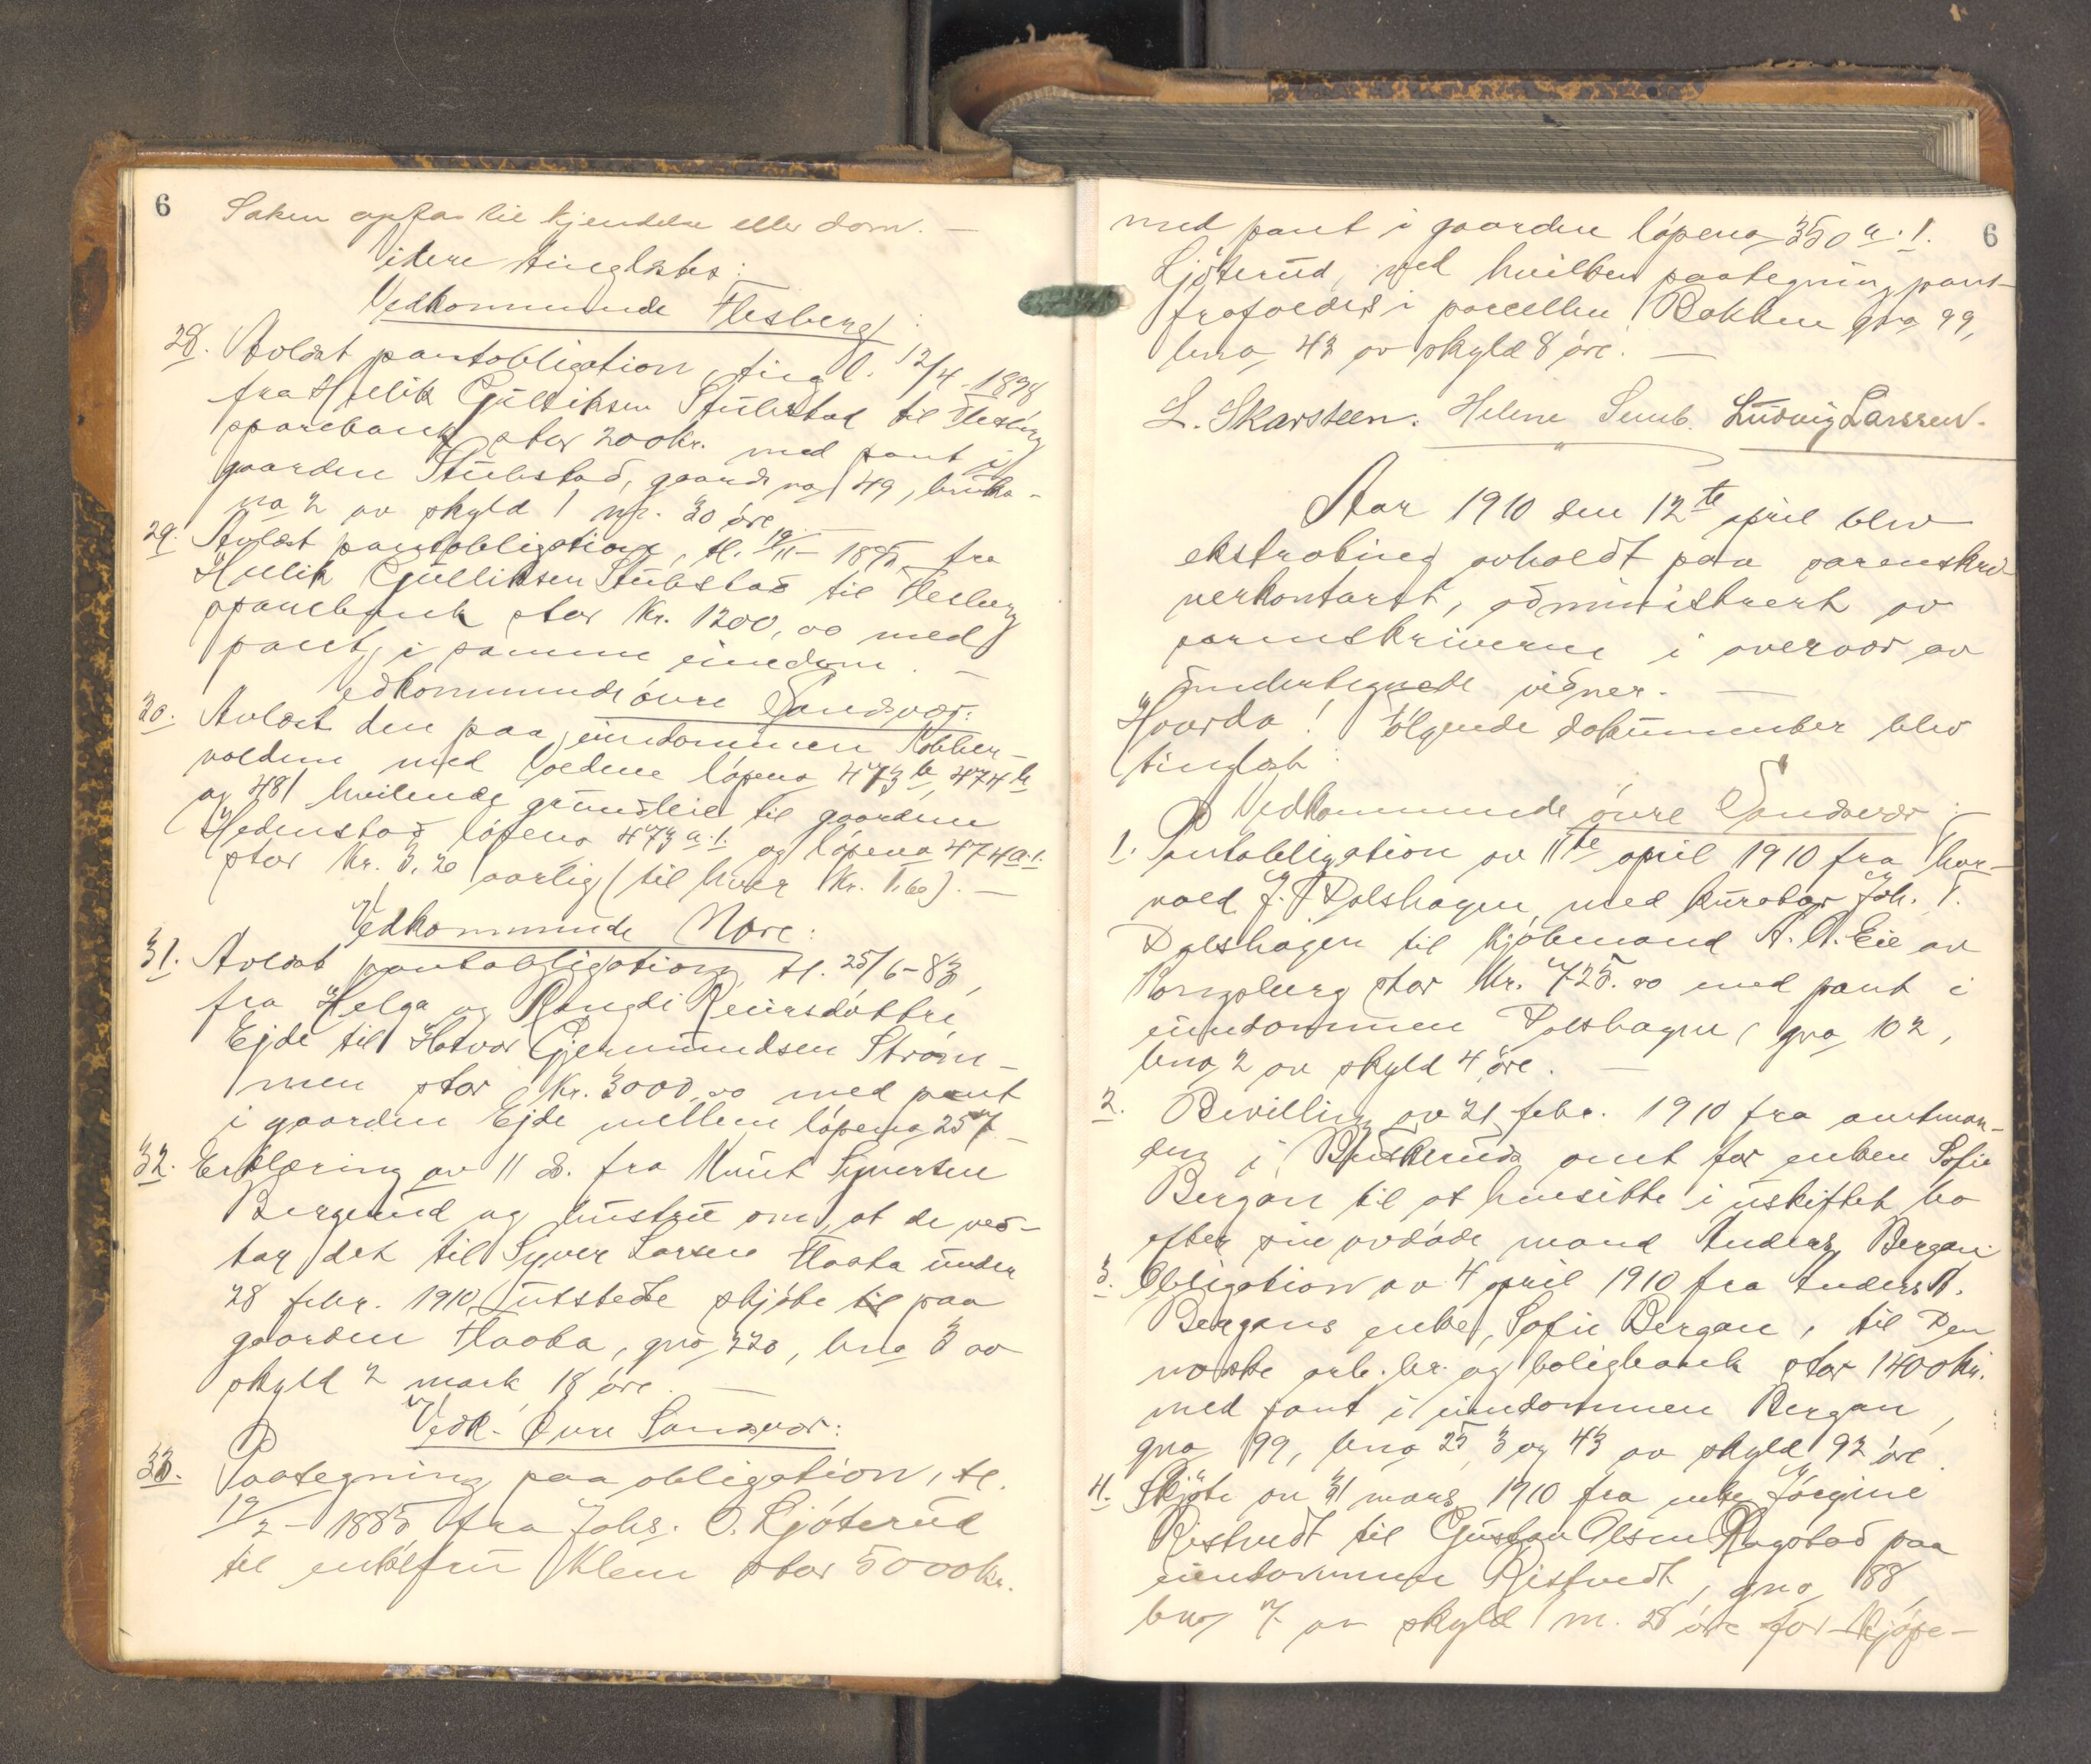 6
Saken optas til kjendelse eller dom. —
Videre tinglæstes:
Vedkommende Flesberg:
28. Avlæst pantobligation, tingl. 12/4-1898
fra Hellik Gulliksen Stubstad til Flesberg
sparebank stor 200 kr. med pant i
gaarden Stubstad, gaards no 49, bruks-
no 2 av skyld 1 mk. 30 øre. —
29. Avlæst pantobligation, tl. 19/11-1895, fra
Hellik Gulliksen Stubstad til Flesberg
sparebank stor kr. 1200,00 med
pant i samme eiendom. —
Vedkommende øvre Sandsvær:
30. Avlæst den paa eiendommen Kobber-
volden med løpeno 473 b, 474 b
og 481 hvilende grundleie til gaardene
Hedenstad løpeno 473 a.1. og løpeno 474 a.1.
stor kr. 3,20 aarlig (til hver kr. 1,60). —
Vedkommende Nore:
31. Avlæst pantobligation, tl. 25/6-83,
fra Helga og Rangdi Reiersdøttre
Ejde til Hotvor Gjermundsen Strøm-
men stor kr. 3000,00 med pant
i gaarden Ejde mellem løpeno 257 —
32. Erklæring av 11 ds. fra Knut Syversen
Bergerud og hustru om, at de ved-
tar det til Syver Larsen Flaata under
28 febr. 1910 utstedte skjøte til paa
gaarden Flaata, gno 220, bno 3 av
skyld 2 mark 18 øre. —
Vedk. Øvre Sandsvær:
33. Paategning paa obligation, tl.
19/2-1885 fra Johs. O. Ljøterud
til enkefru Klem stor 5000 kr.
6
med pant i gaarden løpeno 350 a.1.
Ljøterud, ved hvilken paategning pant-
frafaldes i parcellen Bakken gno 99,
bno 43 av skyld 8 øre. —
L. Skarsteen. Helene Semb. Ludvig Larssen.
Aar 1910 den 12te april blev
ekstrating avholdt paa sorenskri-
verkontoret, administrert av
sorenskriveren i overvær av
undertegnede vidner. —
Hvorda! Følgende dokumenter blev
tinglæst:
Vedkommende øvre Sandsvær:
1. Pantobligation av 11te april 1910 fra Thor-
vald J. Polshagen med kurator Joh. T.
Polshagen til kjøbmand A. A. Eie av
Kongsberg stor kr. 725.00 med pant i
eiendommen Polshagen, gno 102,
bno 2 av skyld 4 øre. —
2. Bevilling av 21 febr. 1910 fra amtman-
den i Buskeruds amt for enken Sofie
Bergan til at hensitte i uskiftet bo
efter sin avdøde mand Anders Bergan.
3. Obligation av 4 april 1910 fra Anders A.
Bergans enke, Sofie Bergan, til Den
norske arb. br. og boligbank stor 1400 kr.
med pant i eiendommen Bergan,
gno 99, bno 25, 3 og 43 av skyld 92 øre.
4. Skjøte av 31 mars 1910 fra enke Jørgine
Ristvedt til Gustav Olsen Ragstad paa
eiendommen Ristvedt, gno 88,
bno 7 av skyld 1 m. 28 øre for kjøpe-